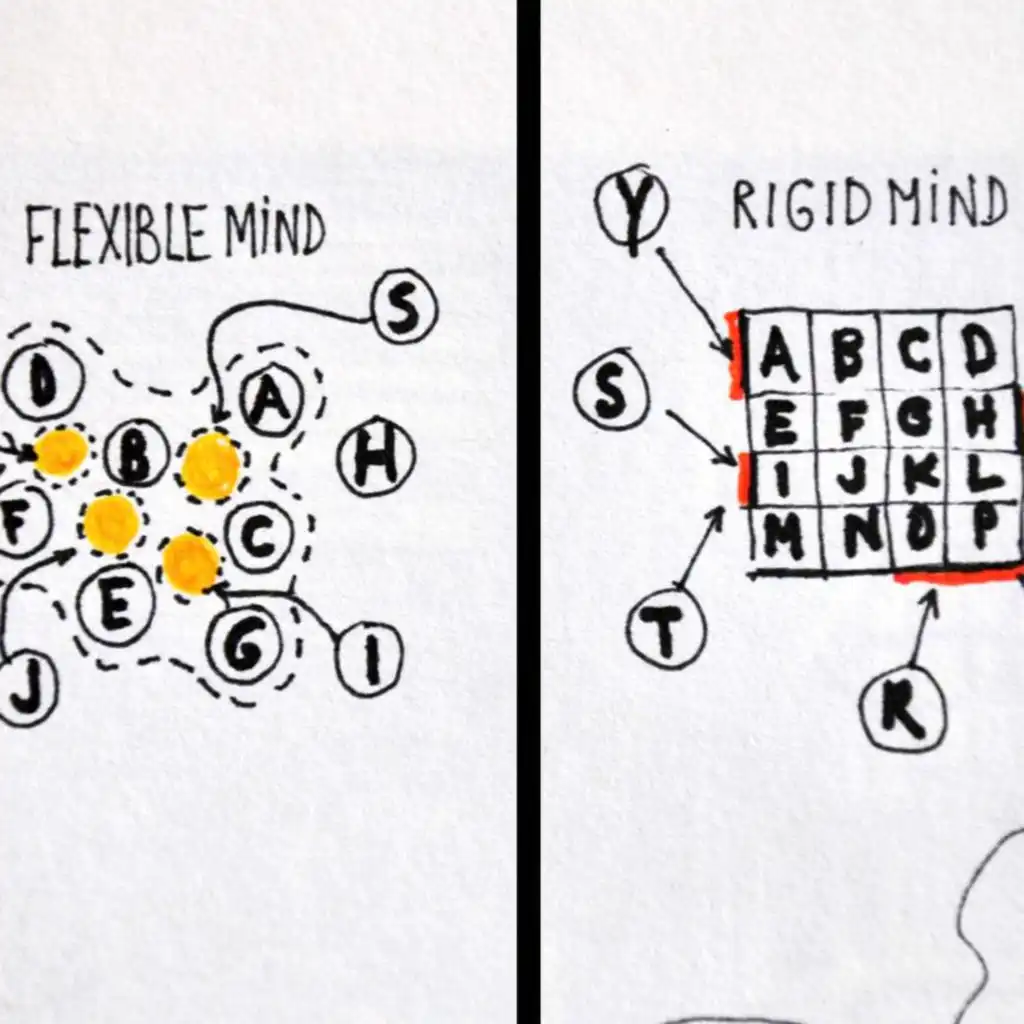 FLEXIBLE MIND
S
D
A
B
H
F
C
E
G
I
J
Y
RIGID MIND
A B C D
S
E F G H
I J K L
M N O P
T
R